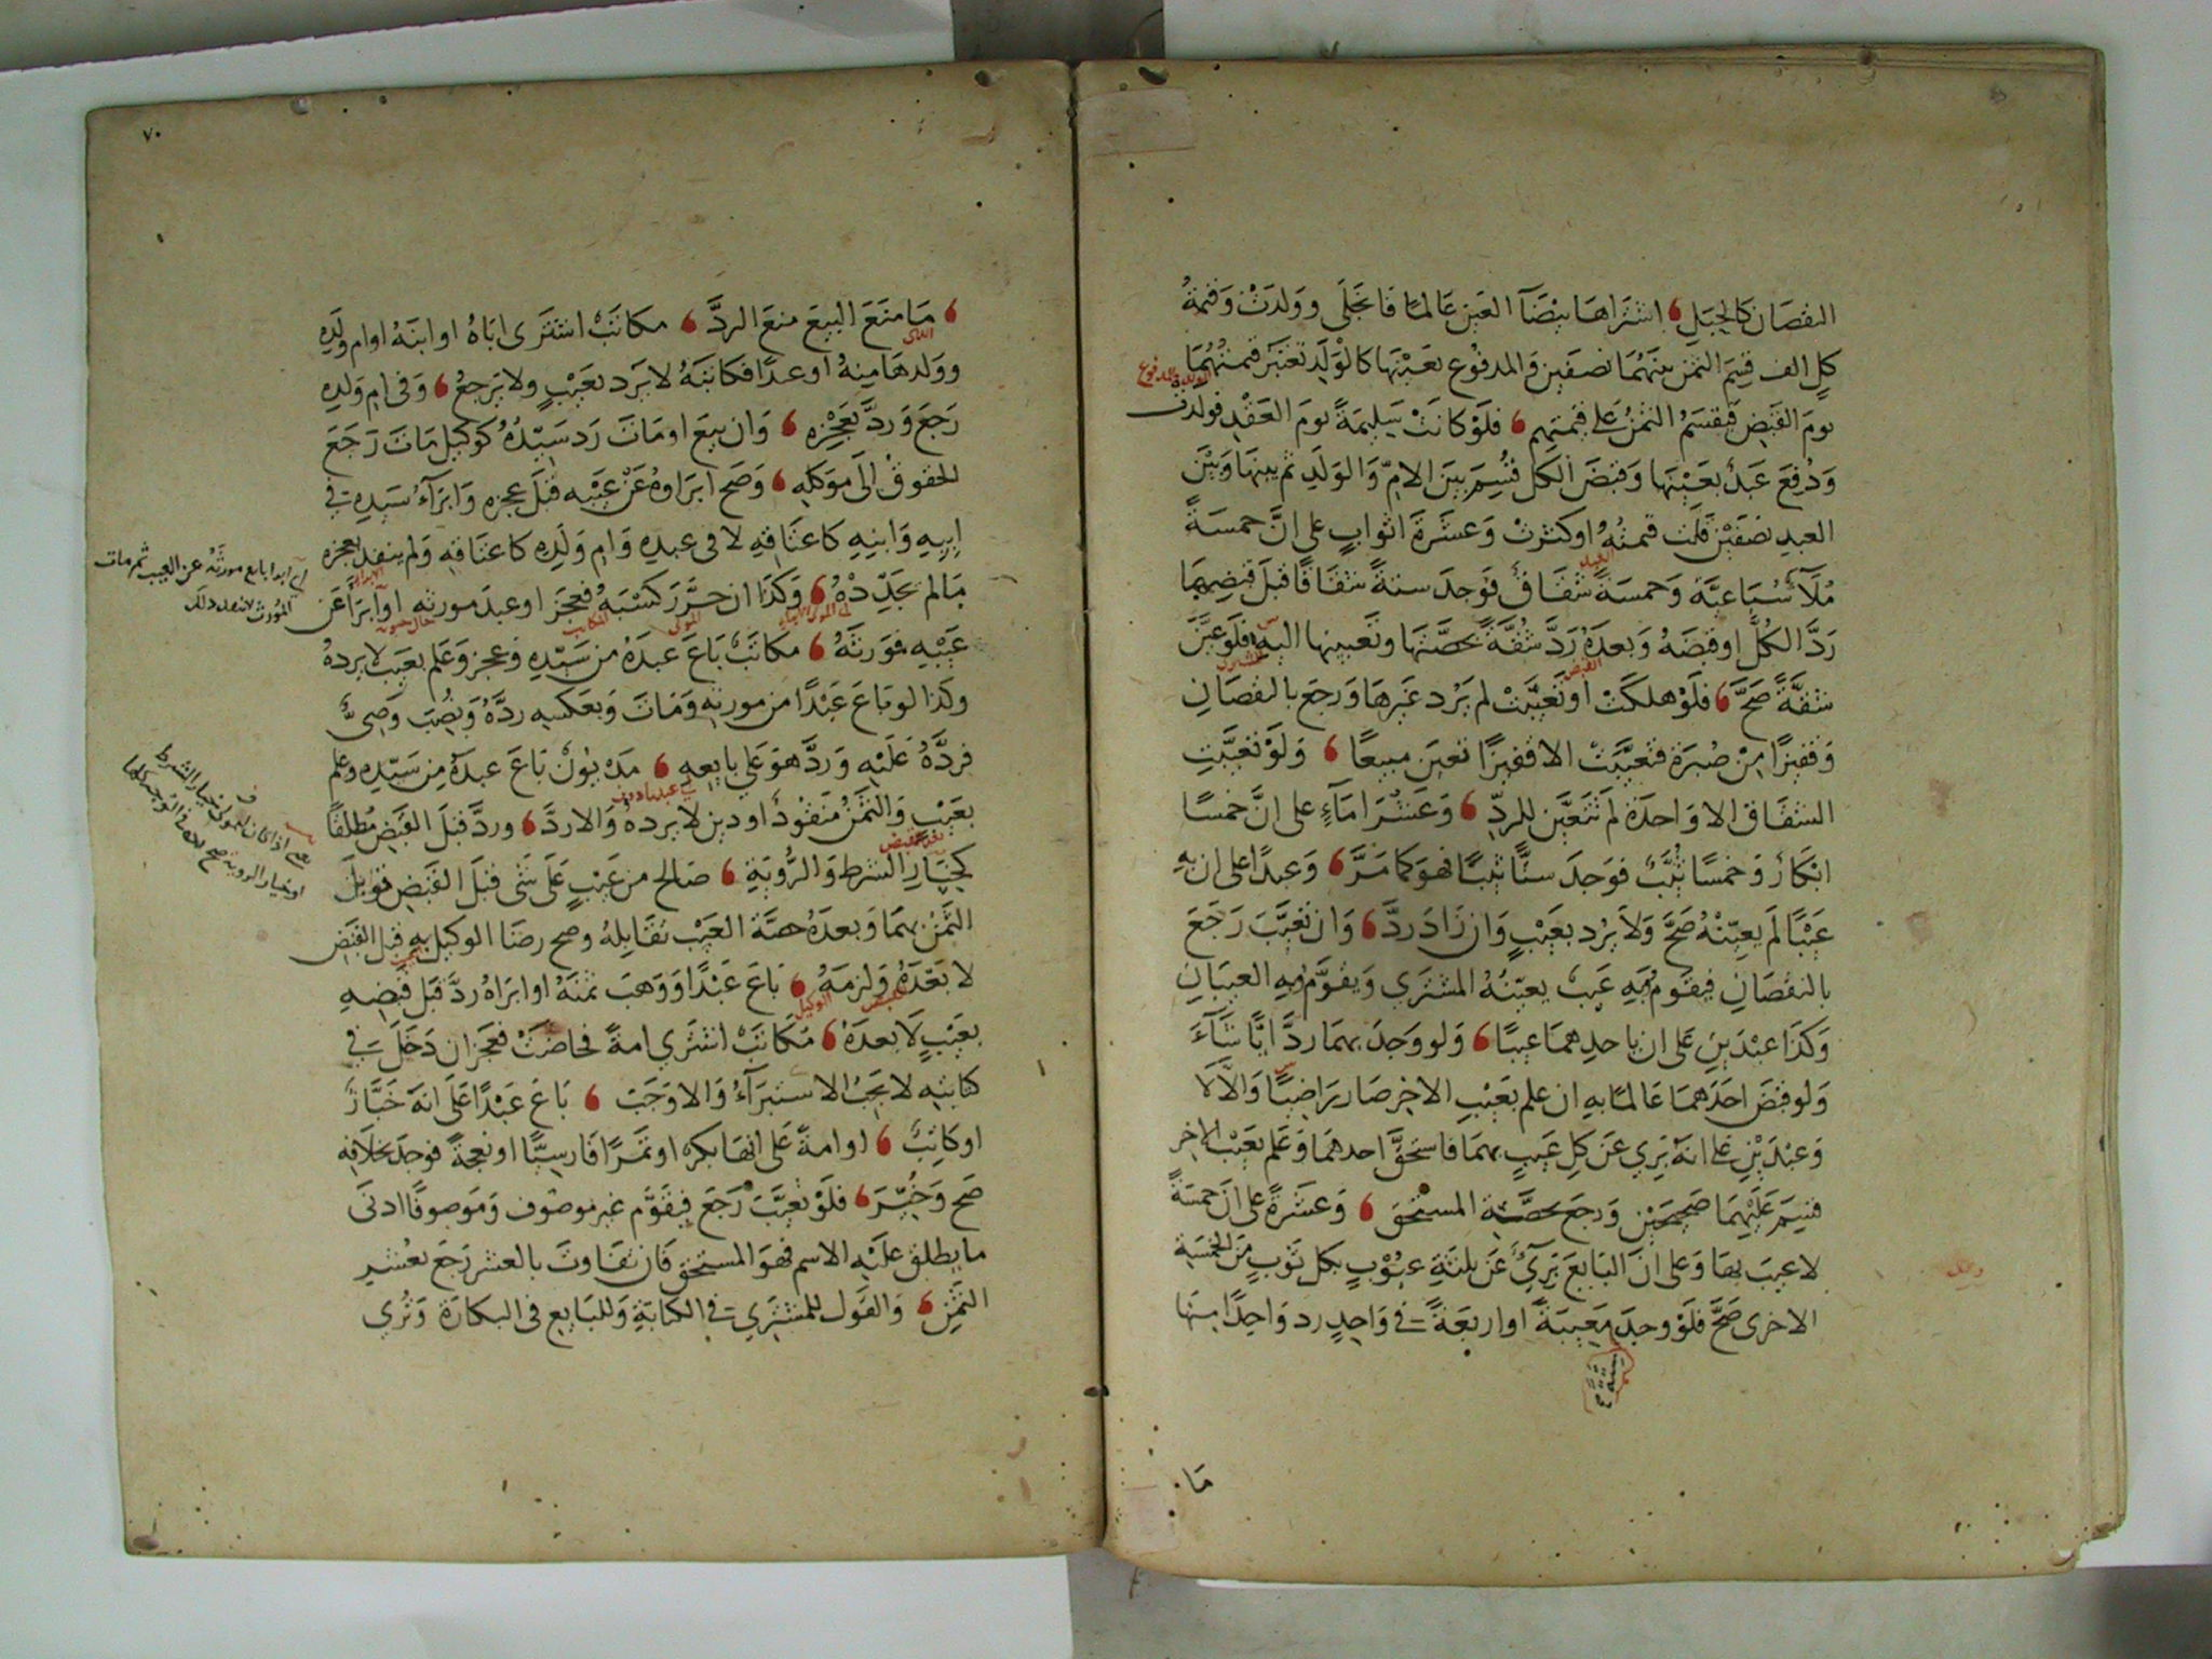 النقصان كالحبل اشتراها بيضآ العين عالمًا فانجلى وولدت وقيمة
كل الف قسم الثمن بينهما نصفين والمدفوع بعينها كالولد تعتبر قيمتهما
يوم القبض فيقسم الثمن على قيمتهم فلو كانت سليمة يوم العقد فولدت
ودفع عبد بعينها وقبض الكل قسم بين الام والولد ثم بينها وبين
العبد نصفين قلت قيمته او كثرت وعشرة اثواب على ان خمسة
ملآ سباعية وخمسة شقاق فوجد ستة شقاقا قبل قبضهما
رد الكل او قبضه وبعده رد شقة بحصتها وتعيينها اليه فلو عين
شقة صح فلو هلكت او تعيبت لم يرد غيرها ورجع بالنقصان
وقفيزا من صبرة فتعيبت الا قفيزا تعين مبيعا ولو تعيبت
الشقاق الا واحدة لم تتعين للرد وعشر امآء على ان خمسا
ابكار وخمسا ثيب فوجد ستا ثيبا فهو كما مر وعبدا على ان به
عيبا لم يعينه صح ولا يرد بعيب وان زاد رد وان تعيب رجع
بالنقصان فيقوم به عيب يعينه المشتري ويقوم وبه العيبان
وكذا عبدين على ان باحدهما عيبا ولو وجد بهما رد ايا شآء
ولو قبض احدهما عالما به ان علم بعيب الاخر صار راضيا والا لا
وعبدين على انه بري عن كل عيب بهما فاستحق احدهما وعلم بعيب الاخر
قسم عليهما صحيحين ورجع بحصة المستحق وعشرة على ان خمسة
لا عيب بها وعلى ان البايع بريء عن ثلثة عيوب بكل ثوب من الخمسة
الاخرى صح فلو وجد معيبة او اربعة في واحد رد واحدا منها
ما
٧٠
ما منع البيع منع الرد مكاتب اشترى اباه او ابنه او ام ولده
وولدها منه او عبدا فكاتبه لا يرد بعيب ولا يرجع وفي ام ولده
رجع ورد بعجزه وان بيع او مات رد سيده كوكيل مات رجع
الحقوق الى موكله وصح ابراوه عن عيبه قبل عجزه وابرآء سيده في
ابيه وابنه كاعتاقه لا في عبده وام ولده كاعتاقه ولم ينفد بعجزه
ما لم يجدده وكذا ان حرر كسبه فعجز او عبد مورثه او ابرأ عن
عيبه فورثه مكاتب باع عبده من سيده وعجز وعلم بعيب لا يرده
وكذا لو باع عبدا من مورثه ومات وبعكسه رده ونصب وصي
فرده عليه ورد هو على بايعه مديون باع عبده من سيده وعلم
بعيب والثمن منقود او دين لا يرده والا رد ورد قبل القبض مطلقا
كخيار الشرط والروية صالح من عيب على شي قبل القبض قوبل
الثمن بهما وبعده حصة العيب تقابله وصح رضا الوكيل به قبل القبض
لا بعده ولزمه باع عبدا ووهب ثمنه او ابراه رد قبل قبضه
بعيب لا بعده مكاتب اشتري امة فحاضت فعجز ان دخل في
كتابته لا يجب الاستبرآء والا وجب باع عبدا على انه خباز
او كاتب او امة على انها بكر او تمرا فارسيا او نعجة فوجد بخلافه
صح وخير فلو تعيب رجع فيقوم غير موصوف وموصوفا ادنى
ما يطلق عليه الاسم فهو المستحق فان تفاوت بالعشر رجع بعشر
الثمن والقول للمشتري في الكتابة وللبايع في البكارة وتري